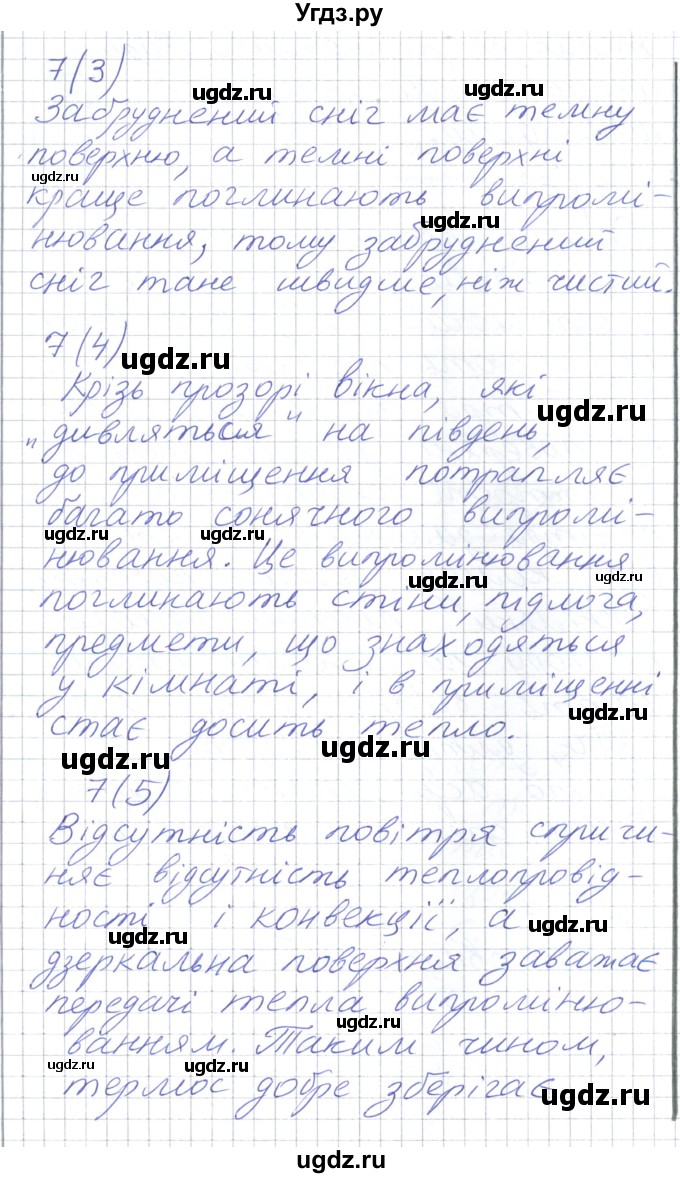 Угдз.ру
7(3)
Забруднений сніг має темну
поверхню, а темні поверхні
краще поглинають випромі-
нювання, тому забруднений
сніг тане швидше, ніж чистий.
7(4)
Крізь прозорі вікна, які
„дивляться" на південь,
до приміщення потрапляє
багато сонячного випромі-
нювання. Це випромінювання
поглинають стіни, підлога,
предмети, що знаходяться
у кімнаті, і в приміщенні
стає досить тепло.
7(5)
Відсутність повітря спричи-
няє відсутність теплопровід-
ності і конвекції, а
дзеркальна поверхня заважає
передачі тепла випроміню-
ванням. Таким чином,
термос добре зберігає
ugdz.ru